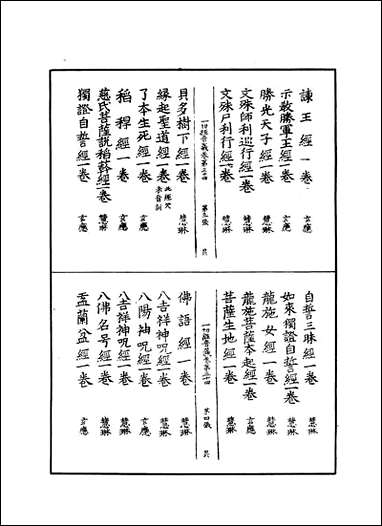 諫王經一卷 玄應
示教勝軍王經一卷 玄應
勝光天子經一卷 慧琳
文殊師利巡行經一卷 慧琳
文殊尸利行經一卷 慧琳
一切經音義卷第三十四 第九張 共
貝多樹下經一卷 慧琳
緣起聖道經一卷 此經文未音訓
了本生死經一卷 玄應
稻稈經一卷 玄應
慈氏菩薩說稻𦼮經一卷 慧琳
獨證自誓經一卷 玄應
自誓三昧經一卷 玄應
如來獨證自誓經一卷 慧琳
龍施女經一卷 慧琳
龍施菩薩本起經一卷 慧琳
菩薩生地經一卷 慧琳
一切經音義卷第三十四 第四張 共
佛語經一卷 慧琳
八吉祥神呪經一卷 慧琳
八陽神呪經一卷 玄應
八吉祥神呪經一卷 慧琳
八佛名号經一卷 慧琳
盂蘭盆經一卷 玄應